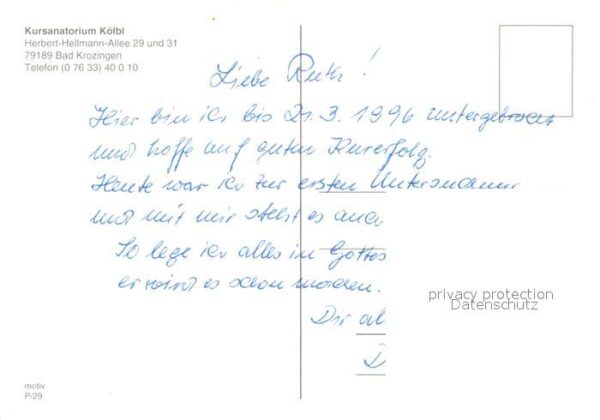 Kursanatorium Kölbl
Herbert-Hellmann-Allee 29 und 31
79189 Bad Krozingen
Telefon (0 76 33) 40 0 10
Liebe Ruth!
Hier bin ich bis 21.3.1996 untergebracht
und hoffe auf guten Kurerfolg.
Heute war ich zur ersten Untersuchung
und mit mir steht es auch
So lege ich alles in Gottes
er wird es schon machen.
Dir al
D
privacy protection
Datenschutz
motiv
P/29